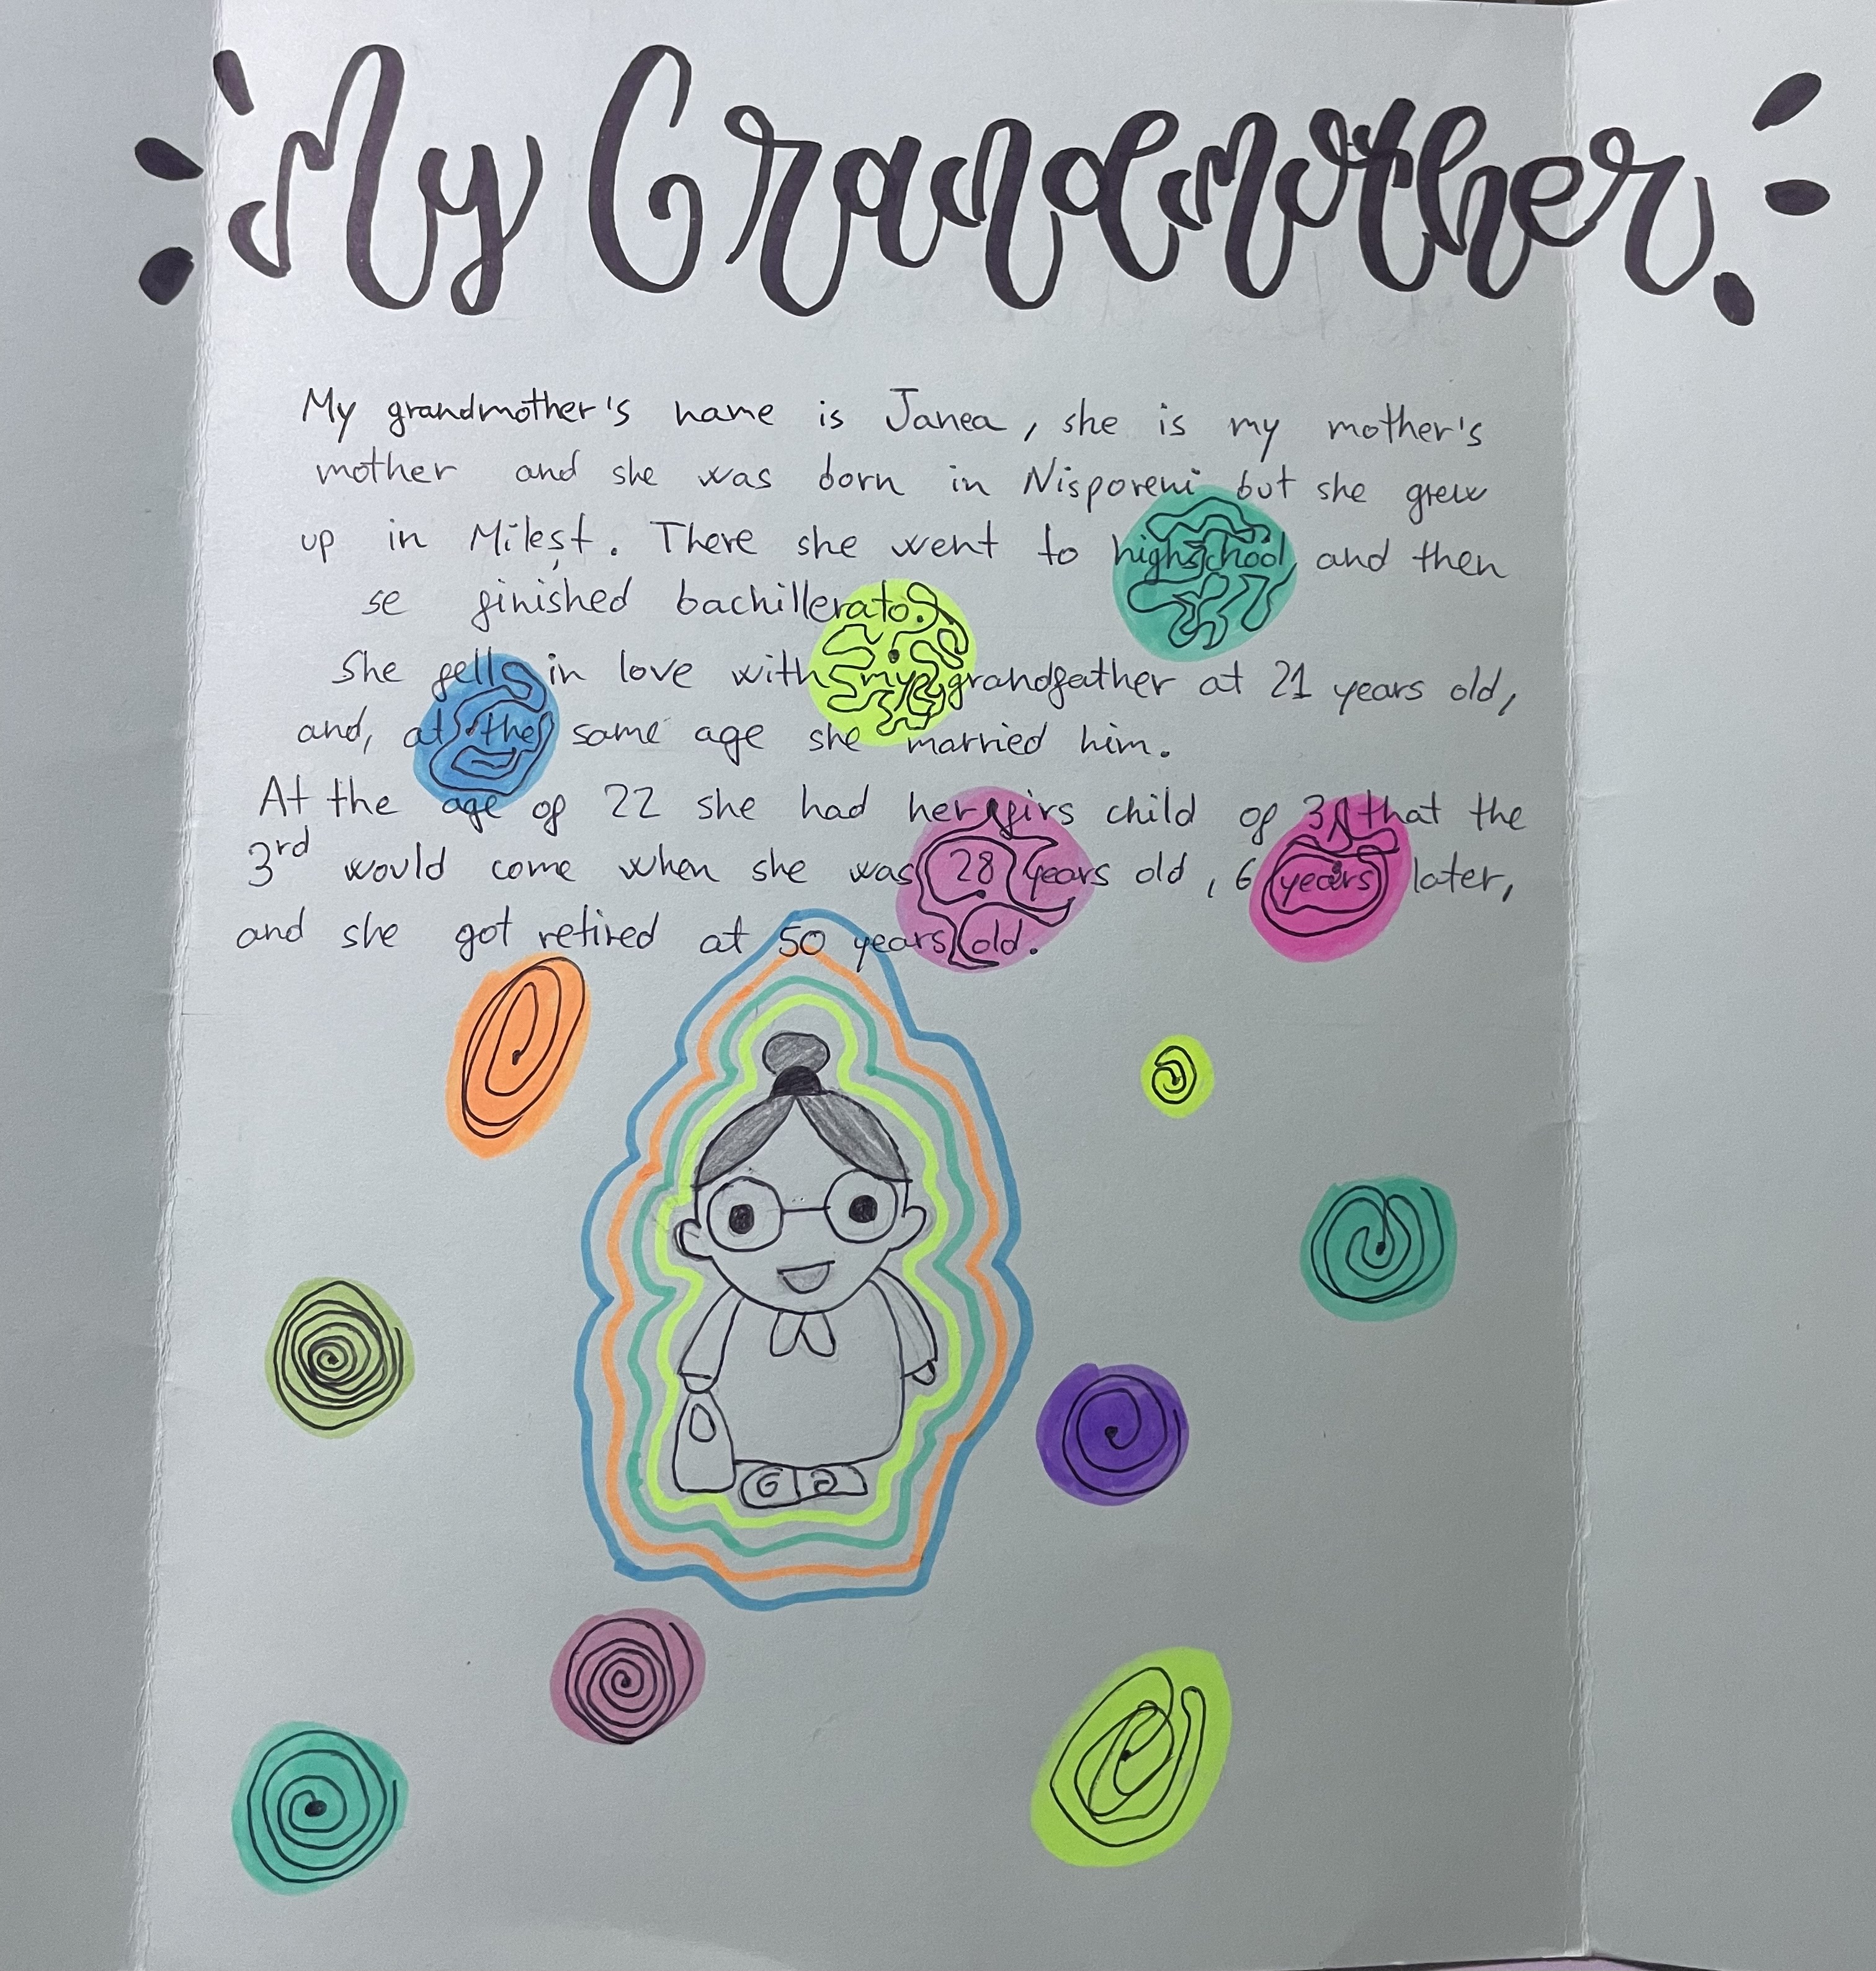 My Grandmother
My grandmother's name is Janea, she is my mother's
mother and she was born in Nisporeni but she grew
up in Mileșt. There she went to highschool, and then
se finished bachillerato.
She fells in love with my grandfather at 21 years old,
and, at the same age she married him.
At the age of 22 she had her firs child of 3, that the
3rd would come when she was 28 years old, 6 years later,
and she got retired at 50 years old.